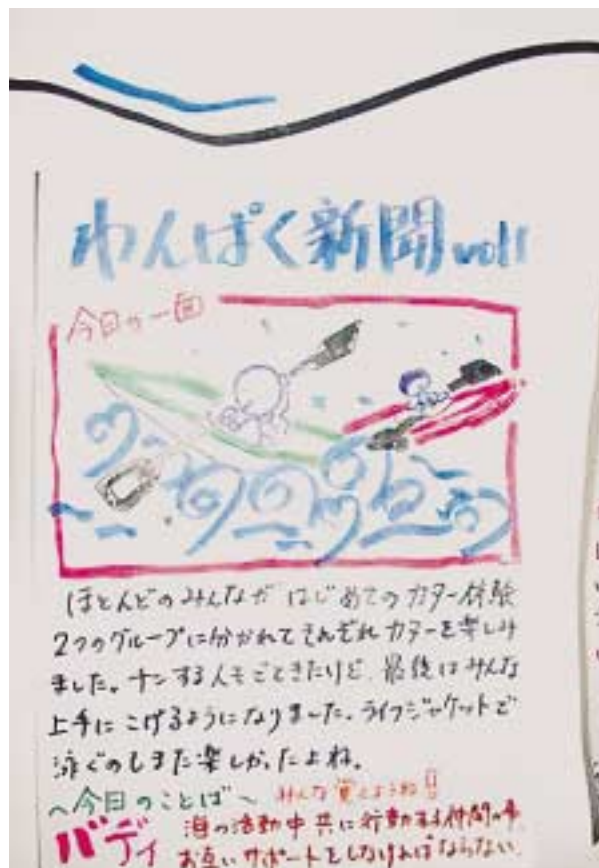 わんぱく新聞 vol1
今日の一面
ほとんどのみんながはじめてのカヌー体験
2つのグループに分かれてそれぞれカヌーを楽しみ
ました。チンする人もでてきたけど、最後はみんな
上手にこげるようになりました。ライフジャケットで
泳ぐのもまた楽しかったよね。
~今日のことば~ みんな覚えようね!!
バディ 海の活動中共に行動する仲間の事
お互いサポートをしなければならない